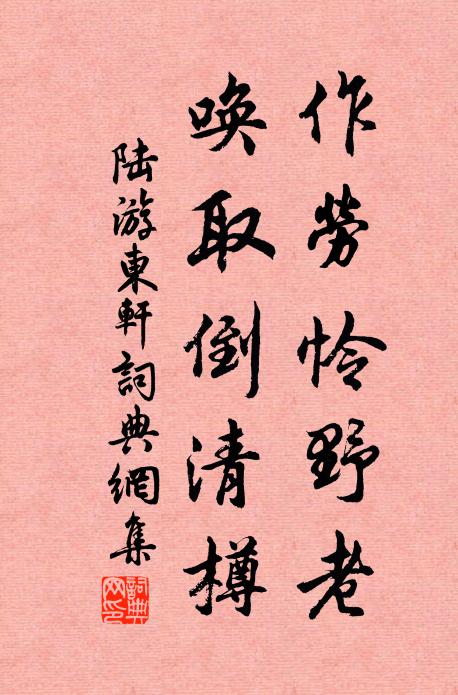 作勞怜野老
喚取倒清樽
陆游東軒詞典網集
詞典网印